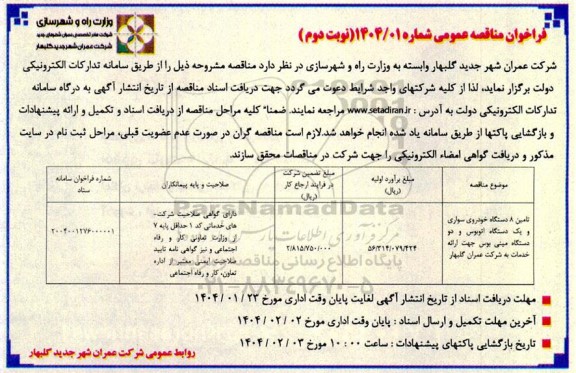 وزارت راه و شهرسازی
شرکت مادر تخصصی عمران شهرهای جدید
شرکت عمران شهر جدید گلبهار
فراخوان مناقصه عمومی شماره ۱۴۰۴/۰۱ (نوبت دوم)
شرکت عمران شهر جدید گلبهار وابسته به وزارت راه و شهرسازی در نظر دارد مناقصه مشروحه ذیل را از طریق سامانه تدارکات الکترونیکی
دولت برگزار نماید، لذا از کلیه شرکتهای واجد شرایط دعوت می گردد جهت دریافت اسناد مناقصه از تاریخ انتشار آگهی به درگاه سامانه
تدارکات الکترونیکی دولت به آدرس : www.setadiran.ir مراجعه نمایند. ضمنا" کلیه مراحل مناقصه از دریافت اسناد و تکمیل و ارائه پیشنهادات
و بازگشایی پاکتها از طریق سامانه یاد شده انجام خواهد شد.لازم است مناقصه گران در صورت عدم عضویت قبلی، مراحل ثبت نام در سایت
مذکور و دریافت گواهی امضاء الکترونیکی را جهت شرکت در مناقصات محقق سازند.
موضوع مناقصه
مبلغ برآورد اولیه
(ریال)
مبلغ تضمین شرکت
در فرایند ارجاع کار
(ریال)
صلاحیت و پایه پیمانکاران
شماره فراخوان سامانه
ستاد
تامین ۸ دستگاه خودروی سواری
و یک دستگاه اتوبوس و دو
دستگاه مینی بوس جهت ارائه
خدمات به شرکت عمران گلبهار
۵۶/۳۱۴/۰۷۹/۴۲۴
۲/۸۱۵/۷۵۰/۰۰۰
دارای گواهی صلاحیت شرکت-
های خدماتی کد ۱ حداقل پایه ۷
از وزارت تعاونی کار و رفاه
اجتماعی و نیز گواهی نامه تایید
صلاحیت ایمنی معتبر از اداره
تعاون، کار و رفاه اجتماعی
۲۰۰۴۰۰۱۲۷۶۰۰۰۰۰۱
ParsNamadData
پایگاه اطلاع رسانی مناقصه
۰۲۱-۸۸۳۴۹۶۷۰-۵
مهلت دریافت اسناد از تاریخ انتشار آگهی لغایت پایان وقت اداری مورخ ۲۳ / ۰۱ / ۱۴۰۴
آخرین مهلت تکمیل و ارسال اسناد : پایان وقت اداری مورخ ۰۲ / ۰۲ / ۱۴۰۴
تاریخ بازگشایی پاکتهای پیشنهادات : ساعت ۰۰ : ۱۰ مورخ ۰۳ / ۰۲ / ۱۴۰۴
روابط عمومی شرکت عمران شهر جدید گلبهار